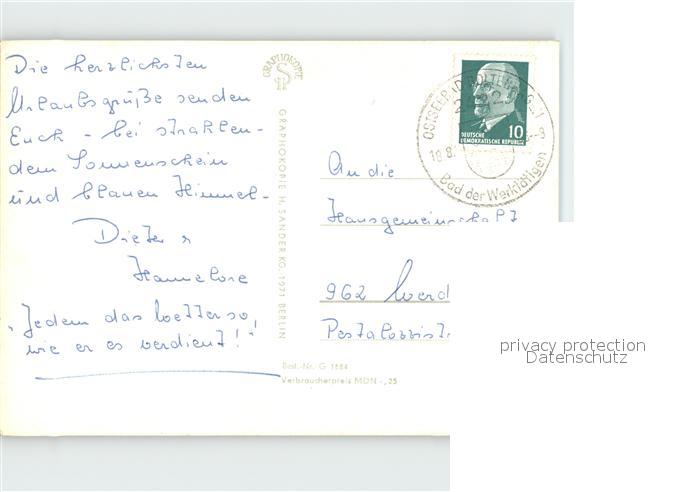 Die herzlichsten
Urlaubsgrüße senden
Euch - bei strahlen-
dem Sonnenschein
und blauen Himmel -
Dieter
Hannelore
"Jedem das Wetter so,
wie er es verdient!"
GRAPHOKOPIE
GRAPHOKOPIE H. SANDER KG, 1971 BERLIN
Best.-Nr. G 1684
Verbraucherpreis MDN -,25
OSTSEEBAD
Bad der Werktätigen
10
DEUTSCHE
DEMOKRATISCHE REPUBLIK
An die
Hausgemeinschaft
962 Werd
Pestalozzist
privacy protection
Datenschutz